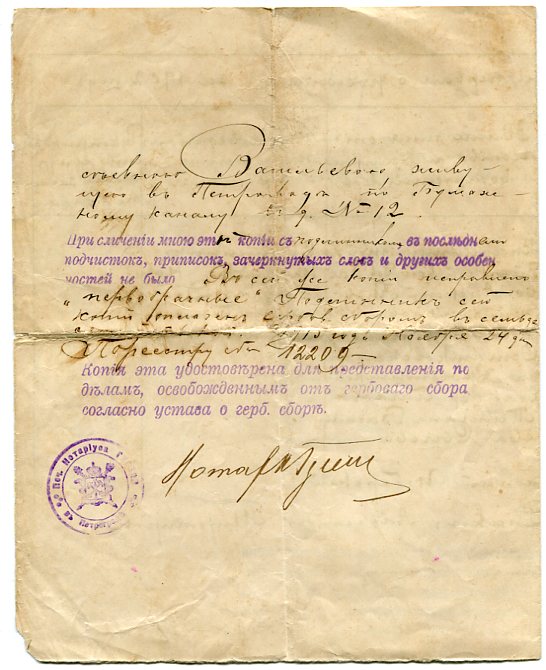 Васильевою живу-
щею въ Петроградѣ по Бумаж-
ному каналу въ д. № 12.
При сличеніи мною этой копіи съ подлинникомъ, въ послѣднемъ
подчистокъ, приписокъ, зачеркнутыхъ словъ и другихъ особен
ностей не было. Въ сей же копіи исправлено
„первобрачные“ Подлинникъ сей
копіи оплаченъ сборомъ въ
1915 года Ноября 24 дня
По реестру № 12209
Копія эта удостовѣрена для представленія по
дѣламъ, освобожденнымъ отъ гербоваго сбора
согласно устава о герб. сборѣ.
Нотаріуса